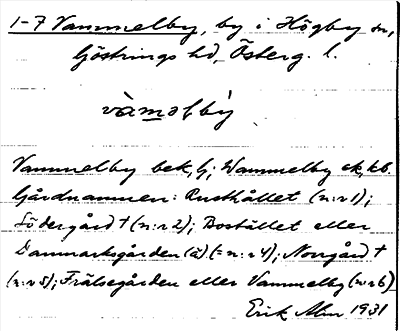 1-7 Vammelby, by i Högby sn,
Göstrings hd, Österg. l.
vàməlby
Vammelby bek, G; Wammelby ek, kb.
Gårdnamnen: Rusthållet (n:r 1);
Södergård † (n:r 2); Bostället eller
Danmarksgården (ä) (= n:r 4); Norrgård †
(n:r 5); Frälsegården eller Vammelby (n:r 6)
Erik Alm 1931